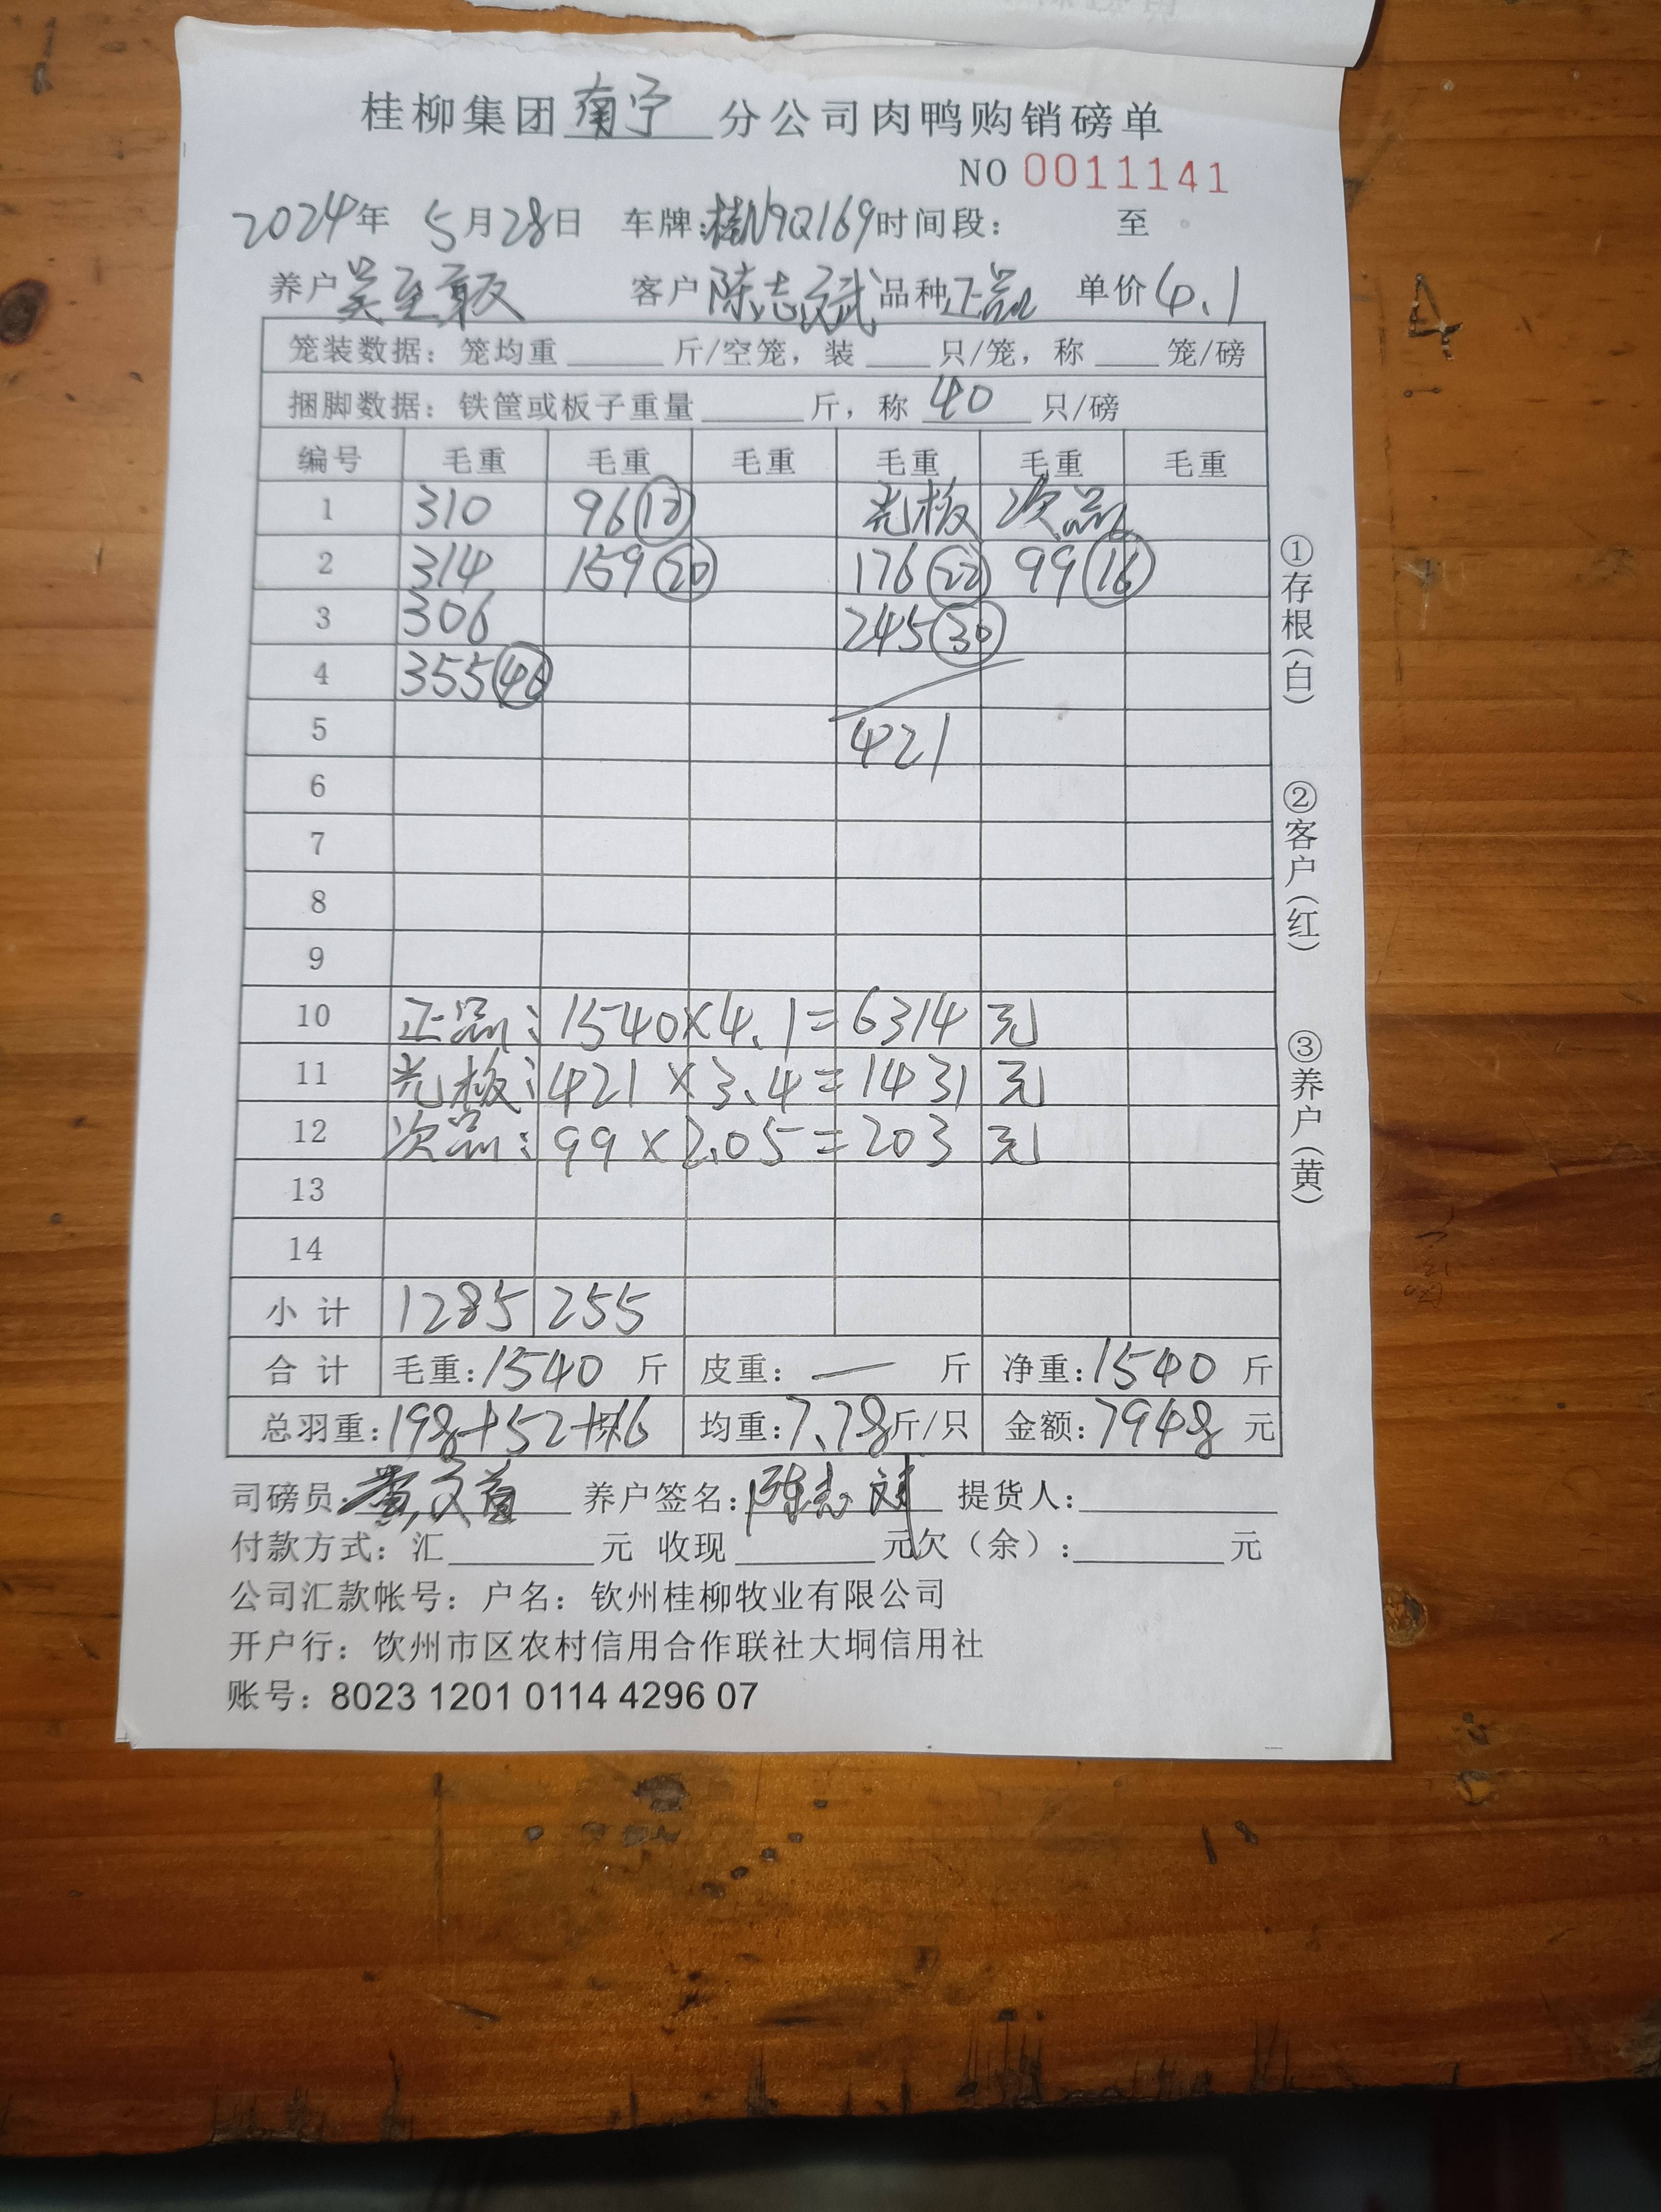 桂柳集团南宁分公司肉鸭购销磅单
NO 0011141
2024年 5月28日 车牌:桂N9Q169 时间段: 至
养户 客户 陈志斌 品种 正品 单价 4.1
笼装数据: 笼均重____斤/空笼, 装____只/笼, 称____笼/磅
捆脚数据: 铁筐或板子重量____斤, 称 40 只/磅
编号 毛重 毛重 毛重 毛重 毛重 毛重
1 310 96 光板 次品
2 314 159 20 176 22 99 16
3 306 245 30
4 355
5 421
6
7
8
9
10 正品: 1540×4.1=6314元
11 光板: 421×3.4=1431元
12 次品: 99×2.05=203元
13
14
小计 1285 255
合计 毛重:1540 斤 皮重: — 斤 净重:1540 斤
总羽重:198+52+16 均重:7.78斤/只 金额:7948 元
司磅员: 养户签名: 提货人:
付款方式: 汇____元 收现____元欠(余):____元
公司汇款帐号: 户名: 钦州桂柳牧业有限公司
开户行: 饮州市区农村信用合作联社大垌信用社
账号: 8023 1201 0114 4296 07
①存根(白)
②客户(红)
③养户(黄)